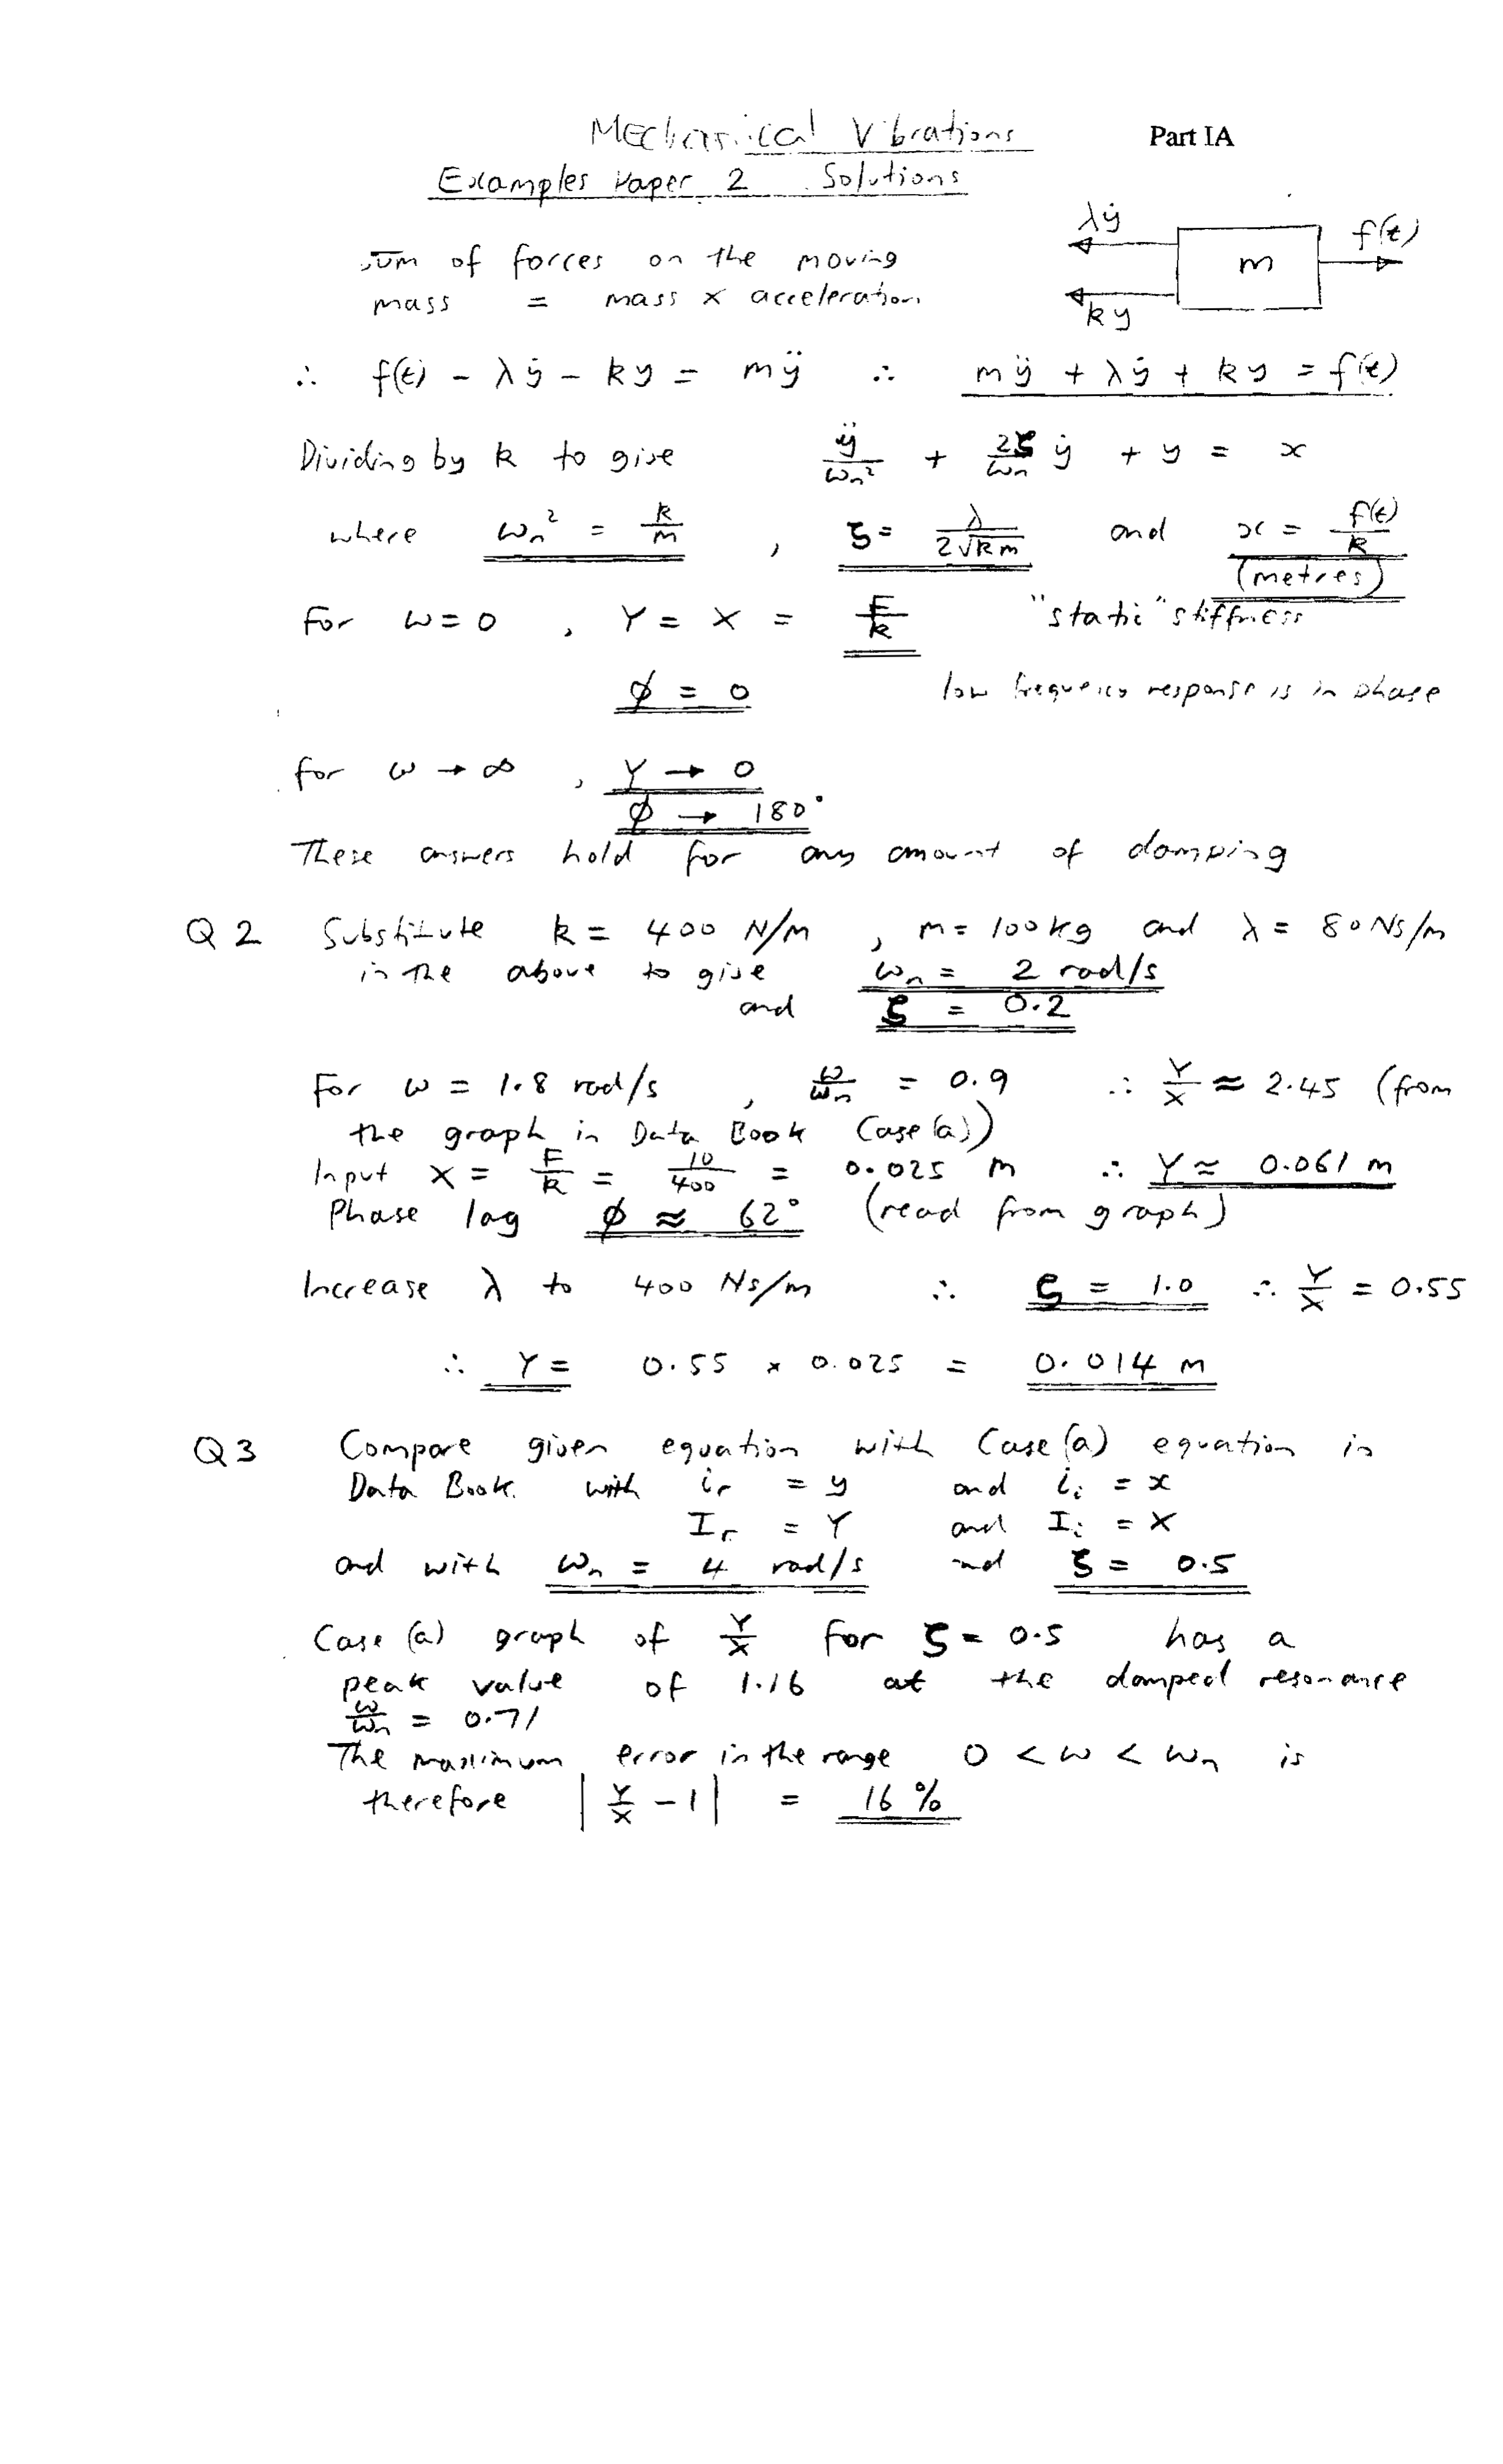 Mechanical Vibrations Part IA
Examples Paper 2 Solutions
λẏ
f(t)
m
ky
sum of forces on the moving
mass = mass × acceleration
∴ f(t) - λẏ - ky = mÿ ∴ mÿ + λẏ + ky = f(t)
Dividing by k to give ÿ/ωn² + 2ζ/ωn ẏ + y = x
where ωn² = k/m , ζ = λ/2√km and x = f(t)/k
(metres)
For ω = 0 , Y = X = F/k "static" stiffness
ϕ = 0 low frequency response is in phase
for ω → ∞ , Y → 0
ϕ → 180°
These answers hold for any amount of damping
Q2 Substitute k = 400 N/m , m = 100kg and λ = 80Ns/m
in the above to give ωn = 2 rad/s
and ζ = 0.2
For ω = 1.8 rad/s , ω/ωn = 0.9 ∴ Y/X ≈ 2.45 (from
the graph in Data Book Case(a))
Input X = F/k = 10/400 = 0.025 m ∴ Y ≈ 0.061 m
Phase lag ϕ ≈ 62° (read from graph)
Increase λ to 400 Ns/m ∴ ζ = 1.0 ∴ Y/X = 0.55
∴ Y = 0.55 × 0.025 = 0.014 m
Q3 Compare given equation with Case(a) equation in
Data Book. with ir = y and ii = x
Ir = Y and Ii = X
and with ωn = 4 rad/s and ζ = 0.5
Case (a) graph of Y/X for ζ = 0.5 has a
peak value of 1.16 at the damped resonance
ω/ωn = 0.71
The maximum error in the range 0 < ω < ωn is
therefore |Y/X - 1| = 16%